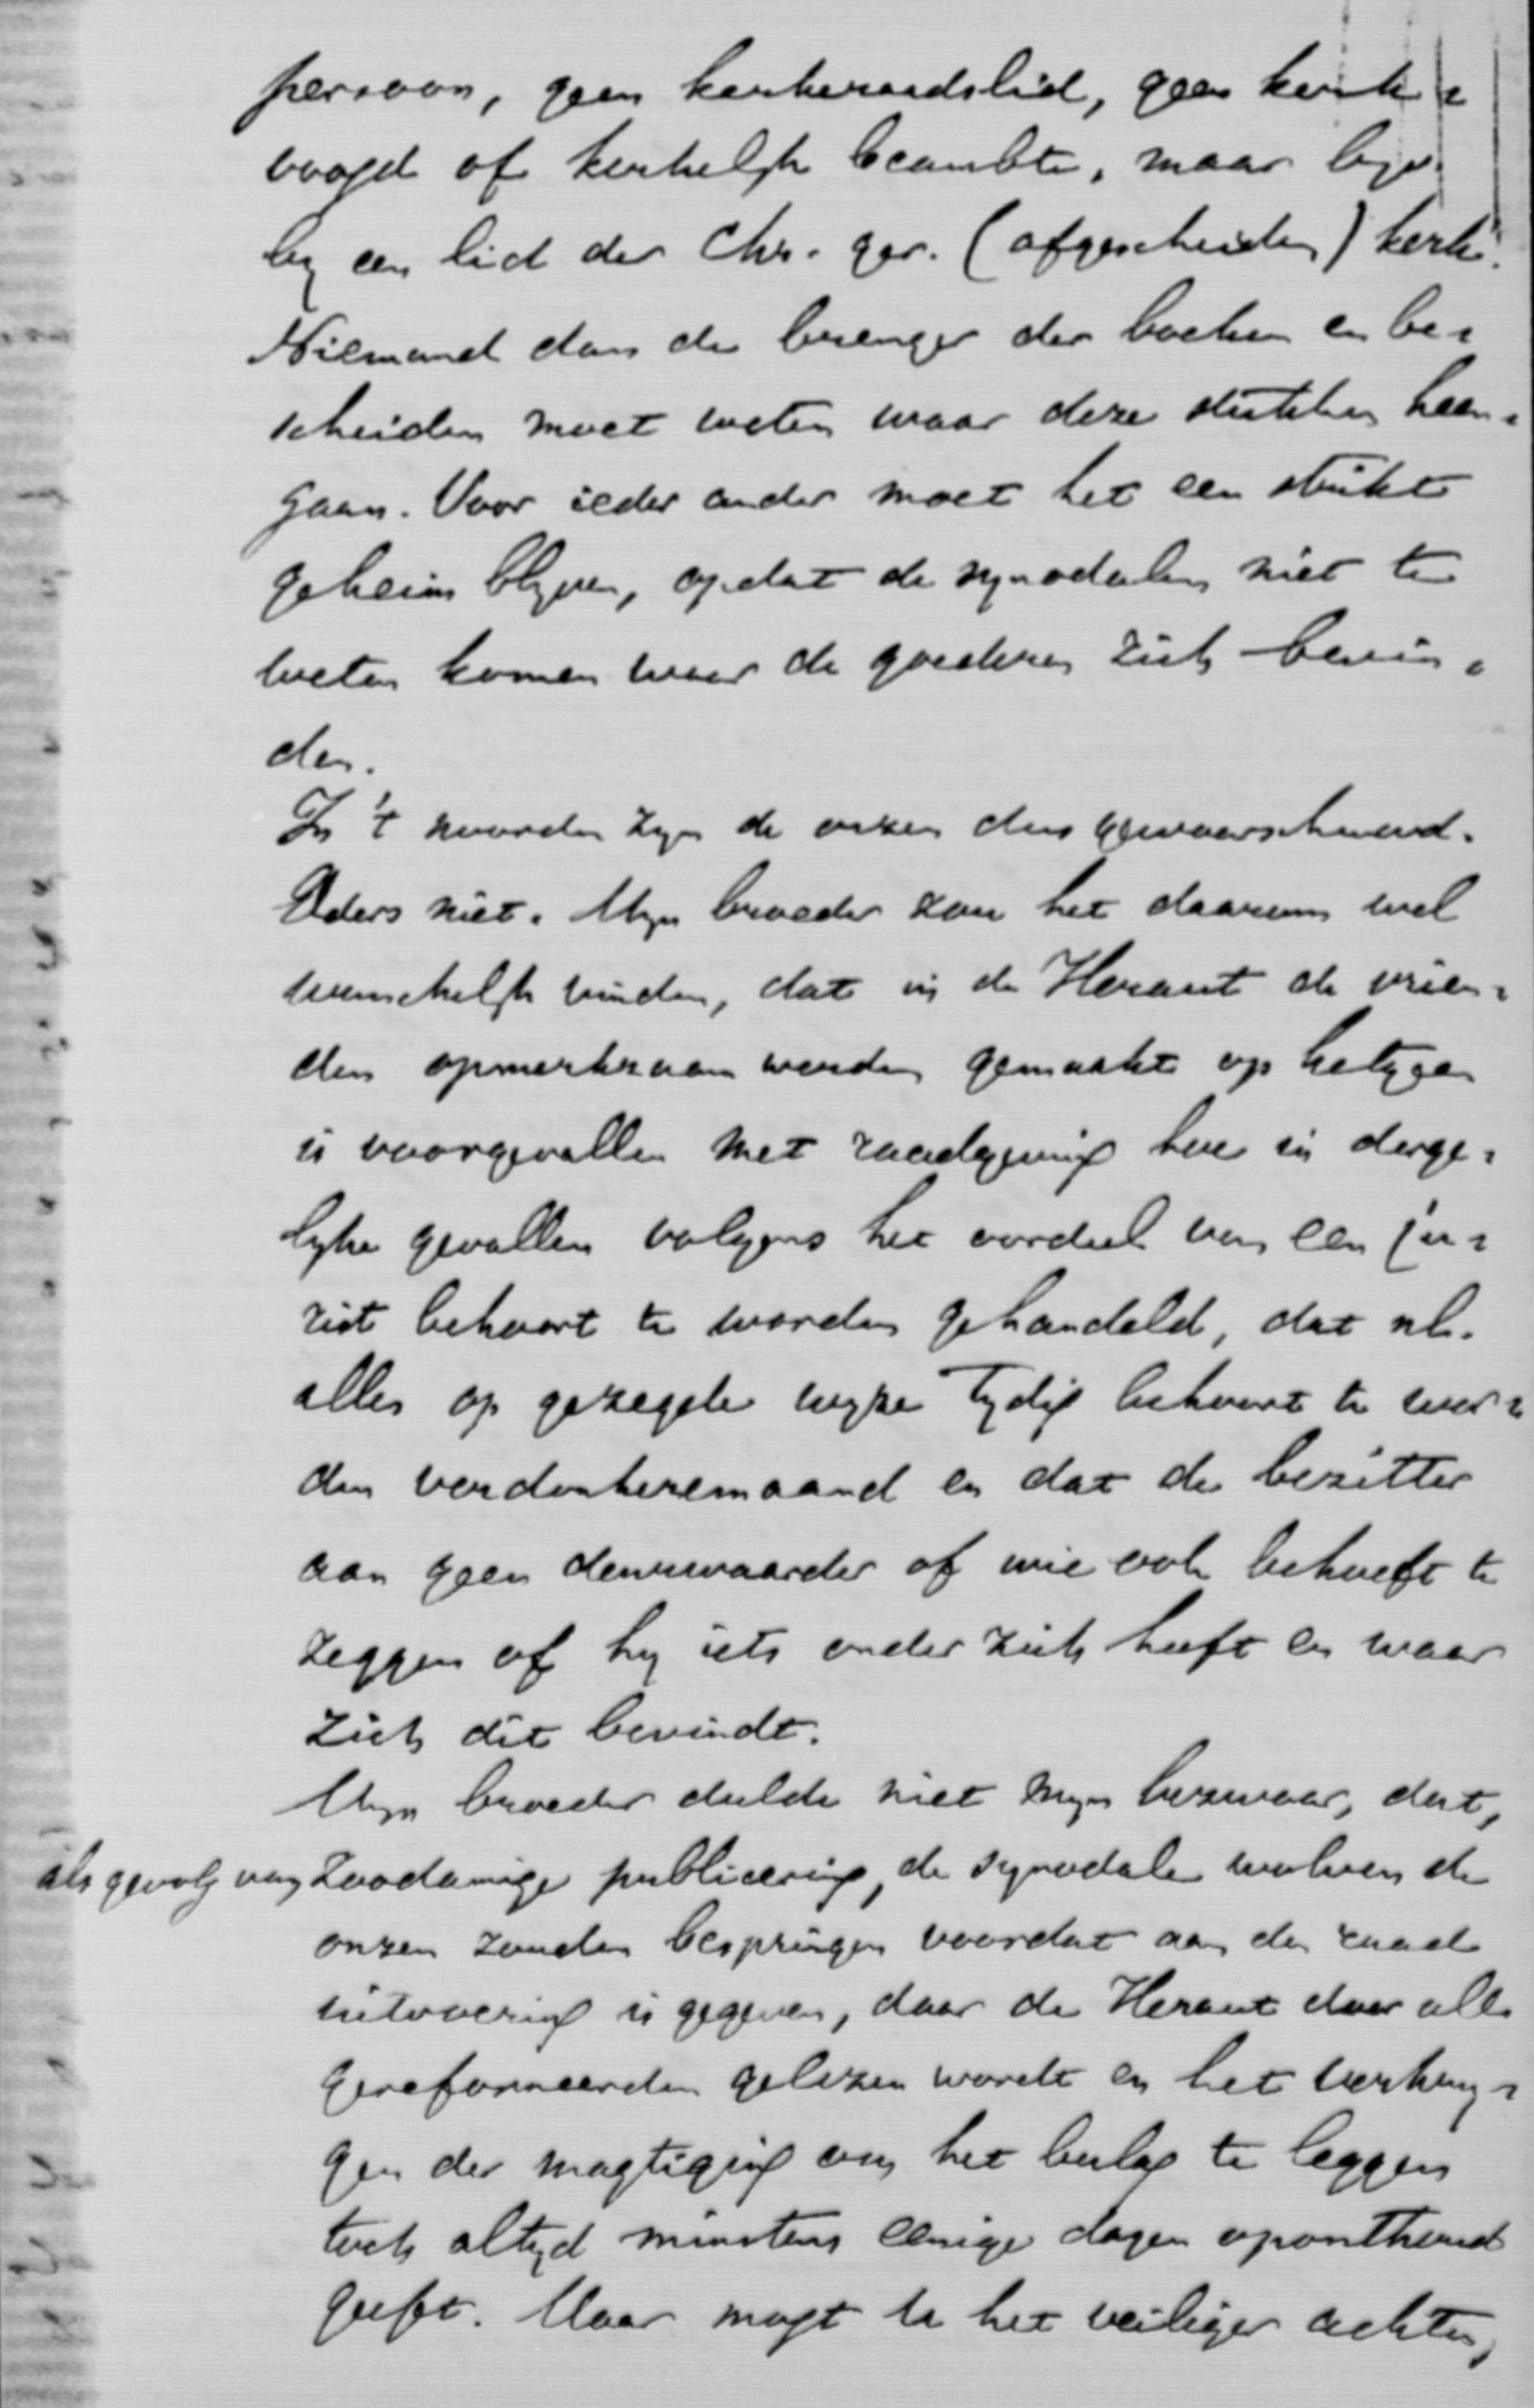 persoon, geen kerkeraadslid, geen kerk=
voogd of kerkelijk beambte, maar bijv.
bij een lid der Chr. ger. (afgescheiden) kerk.
Niemand dan de brenger der boeken en be=
scheiden moet weten waar deze stukken heen=
gaan. Voor ieder ander moet het een strikt
geheim blijven, opdat de synodalen niet te
weten komen waar de goederen zich bevin=
den.
In 't noorden zijn de onzen dus gewaarschuwd.
Elders niet. Mijn broeder zou het daarom wel
wenschelijk vinden, dat in de Heraut de vrien=
den opmerkzaam werden gemaakt op hetgeen
is voorgevallen met raadgeving hoe in derge=
lijke gevallen volgens het oordeel van een ju=
rist behoort te worden gehandeld, dat nl.
alles op gezegde wijze tijdig behoort te wor=
den verdonkeremaand en dat de bezitter
aan geen deurwaarder of wie ook behoeft te
zeggen of hij iets onder zich heeft en waar
zich dit bevindt.
Mijn broeder deelde niet mijn bezwaar, dat,
als gevolg van zoodanige publiceering, de synodale wolven de
onzen zouden bespringen voordat aan den raad
uitvoering is gegeven, daar de Heraut door alle
gereformeerden gelezen wordt en het verkrij=
gen der magtiging om het beslag te leggen
toch altijd minstens eenige dagen oponthoud
geeft. Maar mogt U het veiliger achten,